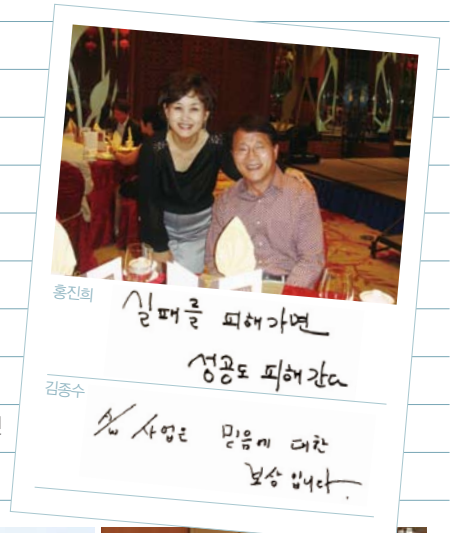 홍진희
실패를 피해가면
성공도 피해 간다
김종수
사업은 믿음에 대한
보상 입니다.